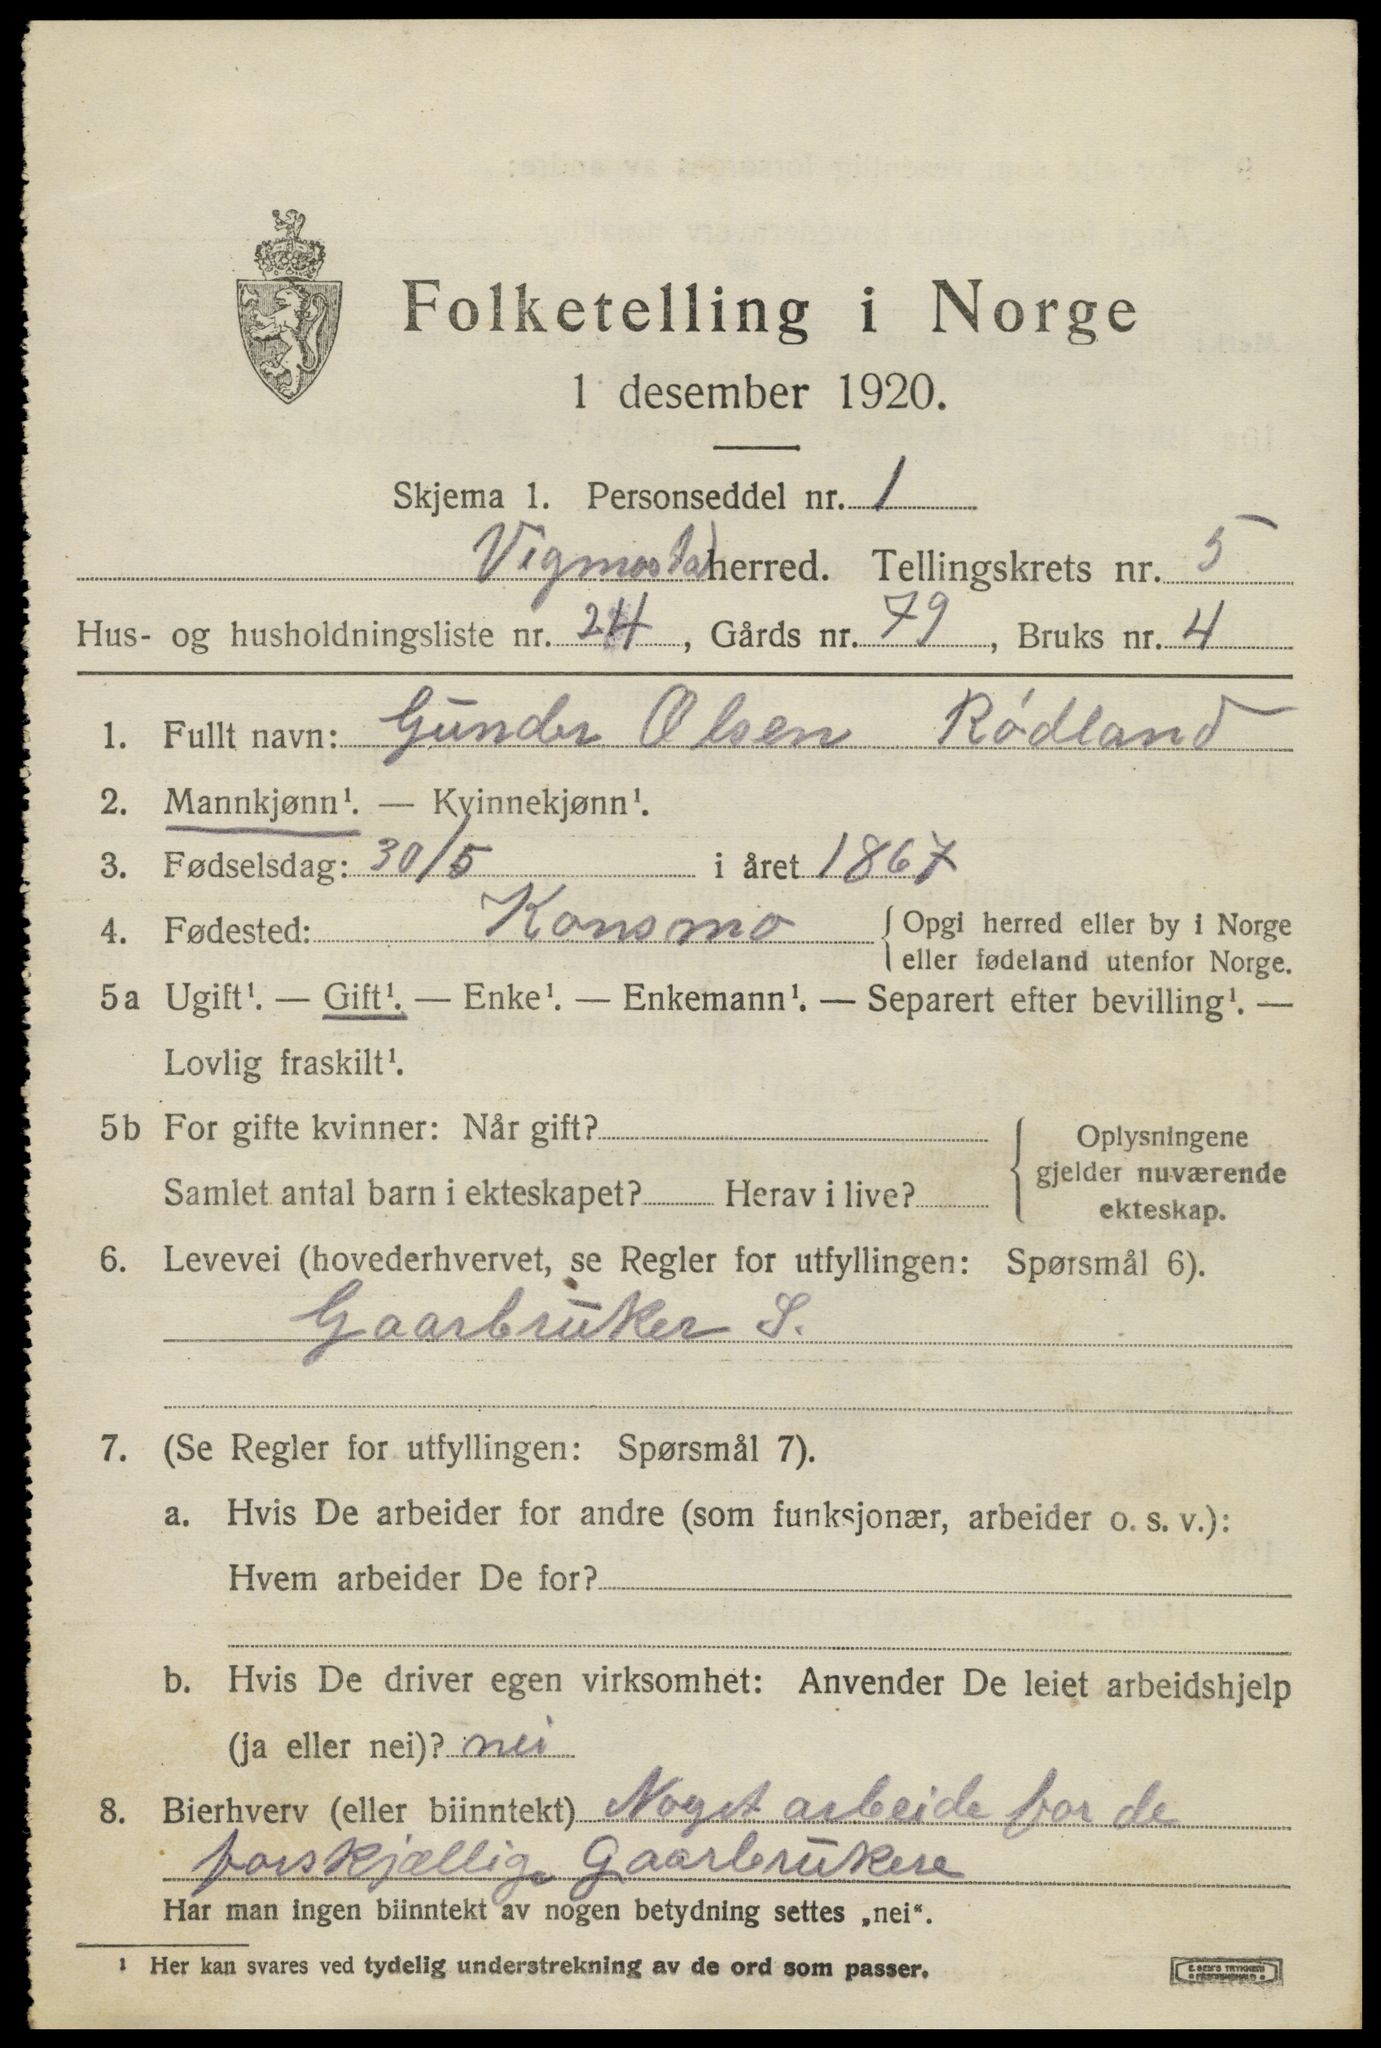 Folketelling i Norge
1 desember 1920.
Skjema 1. Personseddel nr. 1
Vigmostad herred. Tellingskrets nr. 5
Hus- og husholdningsliste nr. 24, Gårds nr. 79, Bruks nr. 4
1. Fullt navn: Gunder Olsen Rødland
2. Mannkjønn¹. — Kvinnekjønn¹.
3. Fødselsdag: 30/5 i året 1867
4. Fødested: Konsmo { Opgi herred eller by i Norge
eller fødeland utenfor Norge.
5a Ugift¹. — Gift¹. — Enke¹. — Enkemann¹. — Separert efter bevilling¹. —
Lovlig fraskilt¹.
5b For gifte kvinner: Når gift?
Samlet antal barn i ekteskapet? Herav i live?
Oplysningene
gjelder nuværende
ekteskap.
6. Levevei (hovederhvervet, se Regler for utfyllingen: Spørsmål 6).
Gaarbruker S.
7. (Se Regler for utfyllingen: Spørsmål 7).
a. Hvis De arbeider for andre (som funksjonær, arbeider o. s. v.):
Hvem arbeider De for?
b. Hvis De driver egen virksomhet: Anvender De leiet arbeidshjelp
(ja eller nei)? nei
8. Bierhverv (eller biinntekt) Noget arbeide for de
forskjællige Gaarbrukere
Har man ingen biinntekt av nogen betydning settes „nei“.
¹ Her kan svares ved tydelig understrekning av de ord som passer.